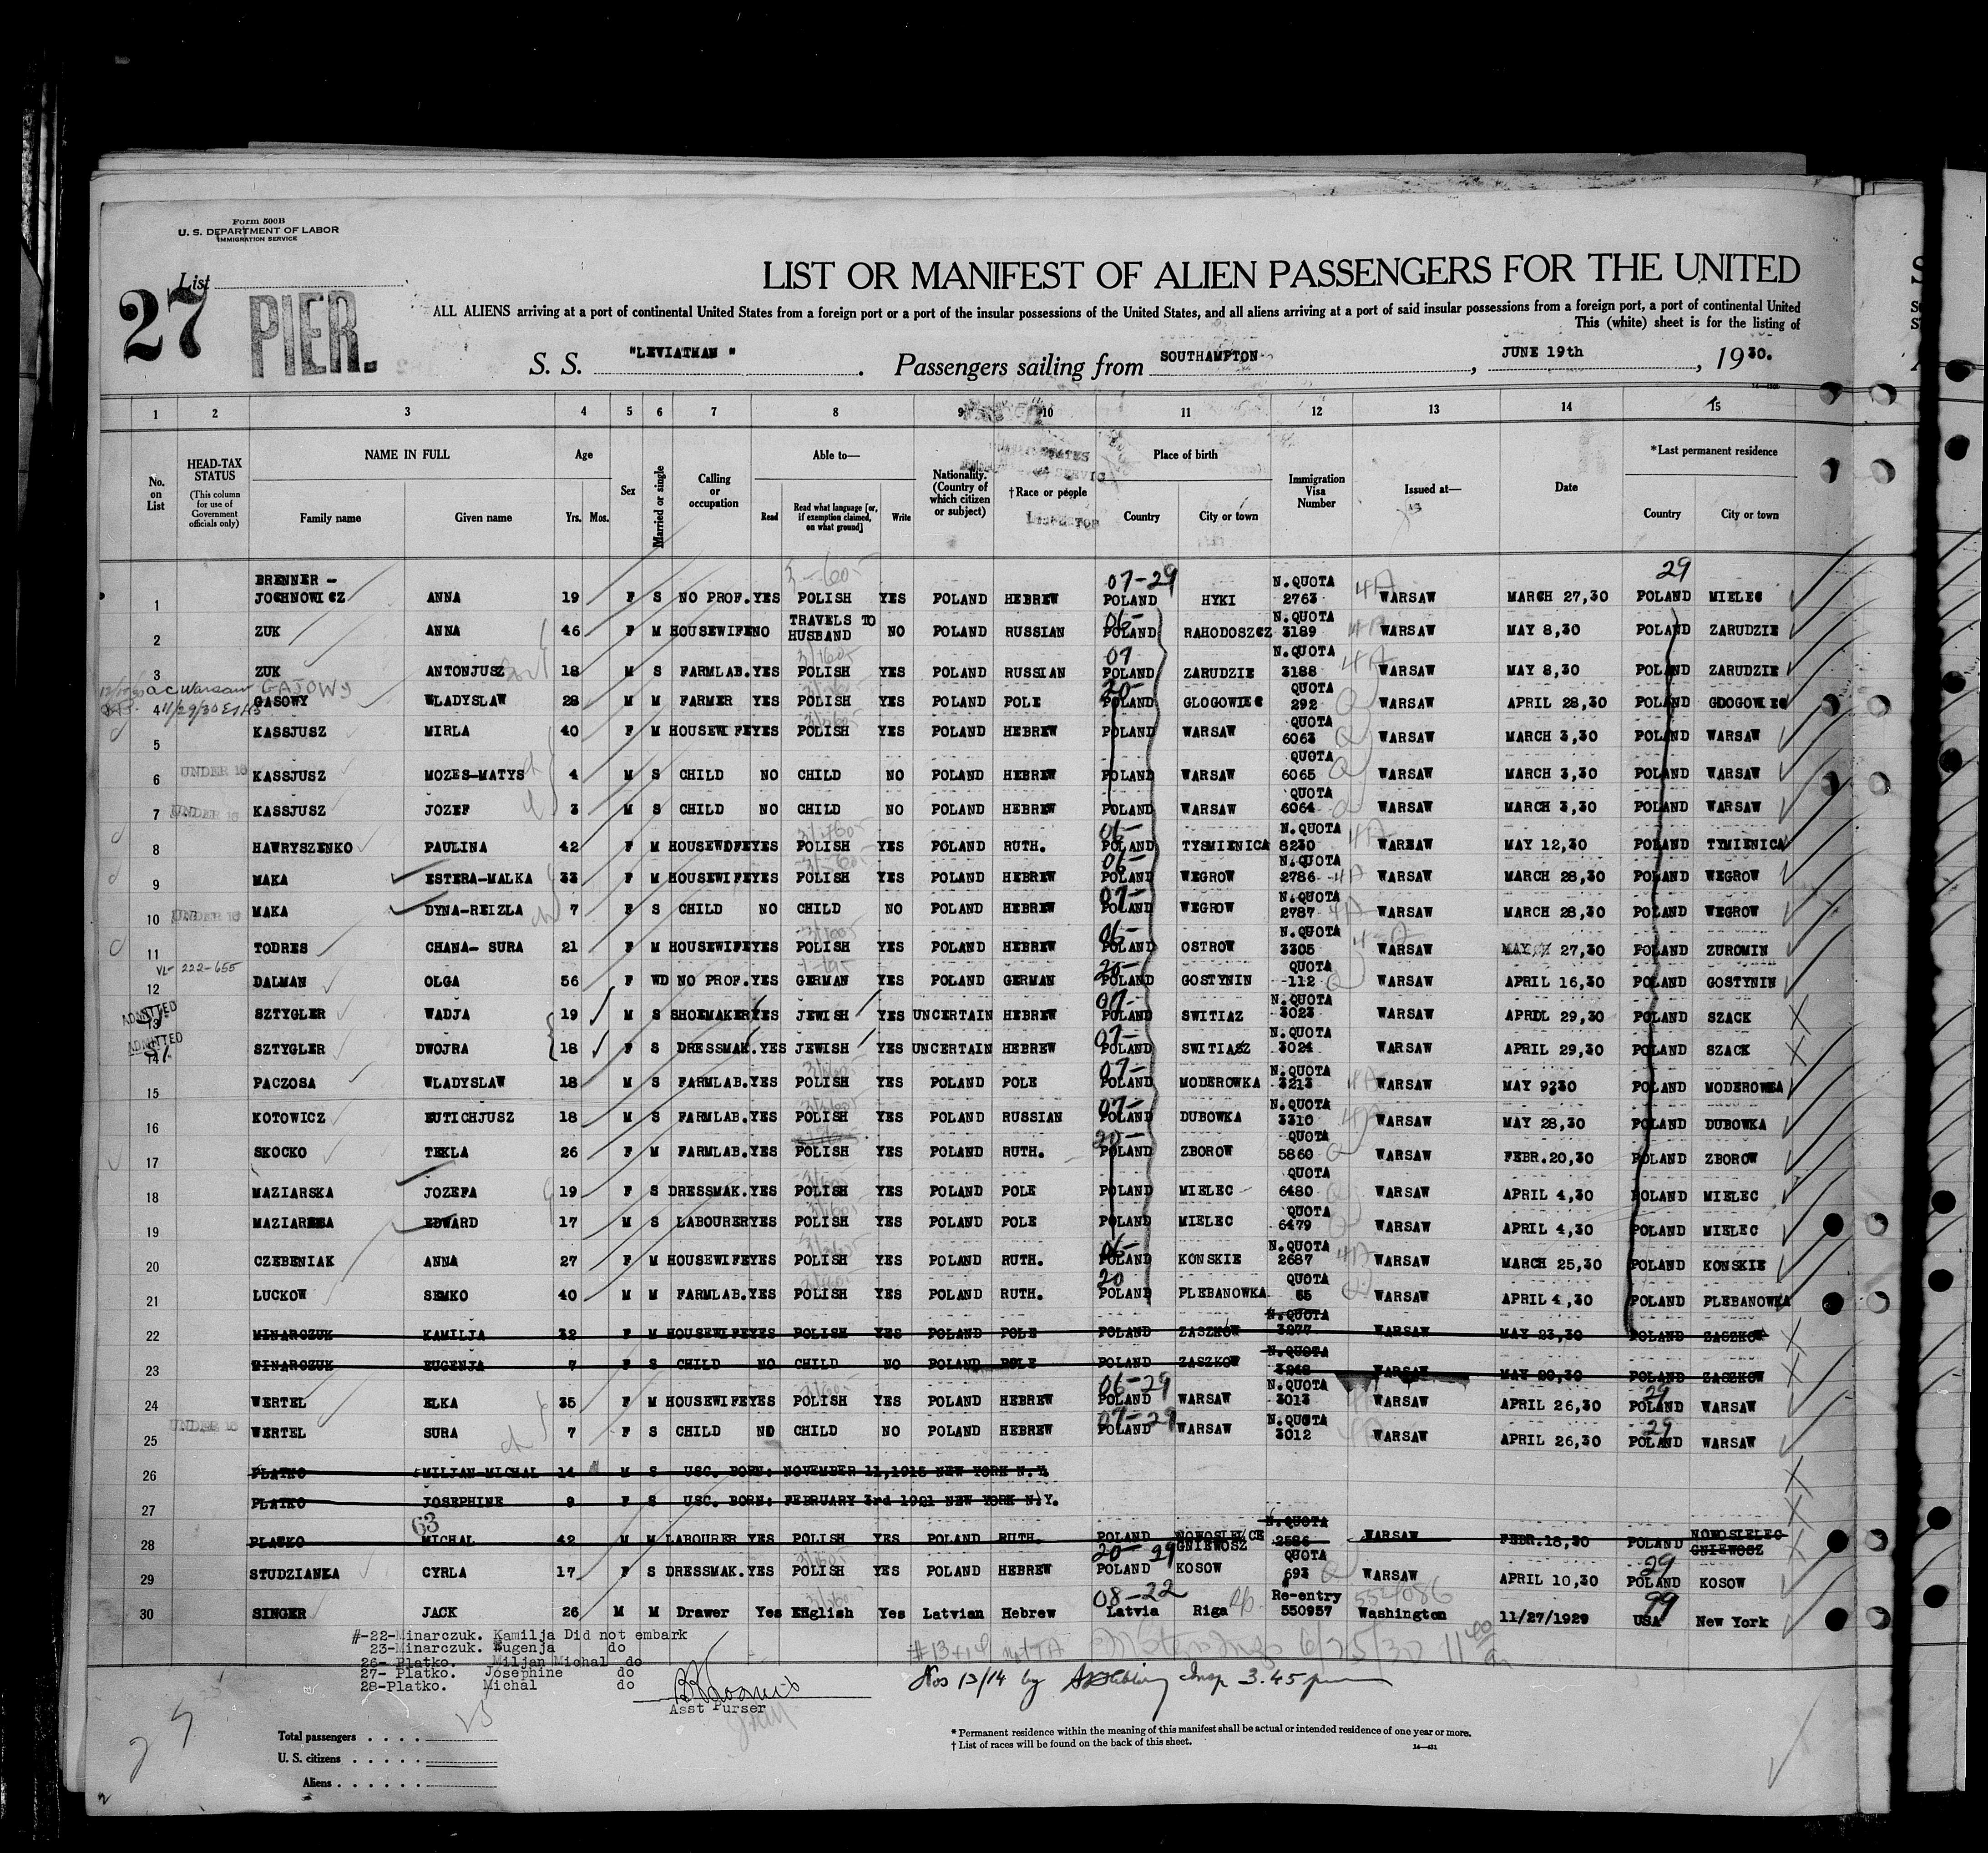 Form 500B
U. S. DEPARTMENT OF LABOR
IMMIGRATION SERVICE
List
27
PIER.
LIST OR MANIFEST OF ALIEN PASSENGERS FOR THE UNITED
ALL ALIENS arriving at a port of continental United States from a foreign port or a port of the insular possessions of the United States, and all aliens arriving at a port of said insular possessions from a foreign port, a port of continental United
This (white) sheet is for the listing of
S. S. "LEVIATHAN" . Passengers sailing from SOUTHAMPTON , JUNE 19th , 1930.
1 2 3 4 5 6 7 8 9 10 11 12 13 14 15
No. on List
HEAD-TAX STATUS (This column for use of Government officials only)
NAME IN FULL Family name Given name
Age Yrs. Mos.
Sex
Married or single
Calling or occupation
Able to— Read Read what language [or, if exemption claimed, on what ground] Write
Nationality. (Country of which citizen or subject)
†Race or people
Place of birth Country City or town
Immigration Visa Number
Issued at—
Date
*Last permanent residence Country City or town
1 BRENNER - JOCHNOWICZ ANNA 19 F S NO PROF. YES POLISH YES POLAND HEBREW 07-29 POLAND HYKI N.QUOTA 2763 4A WARSAW MARCH 27,30 29 POLAND MIELEC
2 ZUK ANNA 46 F M HOUSEWIFE NO TRAVELS TO HUSBAND NO POLAND RUSSIAN 06- POLAND RAHODOSZCZ N.QUOTA 3189 4A WARSAW MAY 8,30 POLAND ZARUDZIE
3 ZUK ANTONJUSZ 18 M S FARMLAB. YES POLISH YES POLAND RUSSIAN 07 POLAND ZARUDZIE N.QUOTA 3188 4A WARSAW MAY 8,30 POLAND ZARUDZIE
ac Warsaw GAJOWY
4 11/29/30 GASOWY WLADYSLAW 28 M M FARMER YES POLISH YES POLAND POLE 20- POLAND GLOGOWIEC QUOTA 292 Q WARSAW APRIL 28,30 POLAND GDOGOWIEC
5 KASSJUSZ MIRLA 40 F M HOUSEWIFE YES POLISH YES POLAND HEBREW POLAND WARSAW QUOTA 6063 Q WARSAW MARCH 3,30 POLAND WARSAW
6 UNDER 16 KASSJUSZ MOZES-MATYS 4 M S CHILD NO CHILD NO POLAND HEBREW POLAND WARSAW QUOTA 6065 Q WARSAW MARCH 3,30 POLAND WARSAW
7 UNDER 16 KASSJUSZ JOZEF 3 M S CHILD NO CHILD NO POLAND HEBREW POLAND WARSAW QUOTA 6064 Q WARSAW MARCH 3,30 POLAND WARSAW
8 HAWRYSZENKO PAULINA 42 F M HOUSEWDFE YES POLISH YES POLAND RUTH. 06- POLAND TYSMIENICA N.QUOTA 8230 4A WARSAW MAY 12,30 POLAND TYMIENICA
9 MAKA ESTERA-MALKA 33 F M HOUSEWIFE YES POLISH YES POLAND HEBREW 06- POLAND WEGROW N.QUOTA 2786 4A WARSAW MARCH 28,30 POLAND WEGROW
10 UNDER 16 MAKA DYNA-REIZLA 7 F S CHILD NO CHILD NO POLAND HEBREW 07- POLAND WEGROW N.QUOTA 2787 4A WARSAW MARCH 28,30 POLAND WEGROW
11 TODRES CHANA- SURA 21 F M HOUSEWIFE YES POLISH YES POLAND HEBREW 06- POLAND OSTROW N.QUOTA 3305 4A WARSAW MAY 27,30 POLAND ZUROMIN
VL- 222-655
12 DALMAN OLGA 56 F WD NO PROF. YES GERMAN YES POLAND GERMAN 20- POLAND GOSTYNIN QUOTA 112 Q WARSAW APRIL 16,30 POLAND GOSTYNIN
ADMITTED
13 SZTYGLER WADJA 19 M S SHOEMAKER YES JEWISH YES UNCERTAIN HEBREW 07- POLAND SWITIAZ N.QUOTA 3023 WARSAW APRDL 29,30 POLAND SZACK
ADMITTED
14 SZTYGLER DWOJRA 18 F S DRESSMAK. YES JEWISH YES UNCERTAIN HEBREW 07- POLAND SWITIASZ N.QUOTA 3024 WARSAW APRIL 29,30 POLAND SZACK
15 PACZOSA WLADYSLAW 18 M S FARMLAB. YES POLISH YES POLAND POLE 07- POLAND MODEROWKA N.QUOTA 3213 4A WARSAW MAY 9,30 POLAND MODEROWKA
16 KOTOWICZ EUTICHJUSZ 18 M S FARMLAB. YES POLISH YES POLAND RUSSIAN 07- POLAND DUBOWKA N.QUOTA 3310 4A WARSAW MAY 28,30 POLAND DUBOWKA
17 SKOCKO TEKLA 26 F M FARMLAB. YES POLISH YES POLAND RUTH. 20- POLAND ZBOROW QUOTA 5860 Q WARSAW FEBR.20,30 POLAND ZBOROW
18 MAZIARSKA JOZEFA 19 F S DRESSMAK. YES POLISH YES POLAND POLE POLAND MIELEC QUOTA 6480 Q WARSAW APRIL 4,30 POLAND MIELEC
19 MAZIARSKA EDWARD 17 M S LABOURER YES POLISH YES POLAND POLE POLAND MIELEC QUOTA 6479 Q WARSAW APRIL 4,30 POLAND MIELEC
20 CZEBENIAK ANNA 27 F M HOUSEWIFE YES POLISH YES POLAND RUTH. 06- POLAND KONSKIE N.QUOTA 2687 4A WARSAW MARCH 25,30 POLAND KONSKIE
21 LUCKOW SEMKO 40 M M FARMLAB. YES POLISH YES POLAND RUTH. 20 POLAND PLEBANOWKA QUOTA 65 Q WARSAW APRIL 4,30 POLAND PLEBANOWKA
22 MINARCZUK KAMILJA 32 F M HOUSEWIFE YES POLISH YES POLAND POLE POLAND ZASZKOW N.QUOTA 3277 WARSAW MAY 23,30 POLAND ZASZKOW
23 MINARCZUK EUGENJA 7 F S CHILD NO CHILD NO POLAND POLE POLAND ZASZKOW N.QUOTA WARSAW MAY 20,30 POLAND ZASZKOW
24 WERTEL ELKA 35 F M HOUSEWIFE YES POLISH YES POLAND HEBREW 06-29 POLAND WARSAW N.QUOTA 3013 WARSAW APRIL 26,30 29 POLAND WARSAW
25 UNDER 16 WERTEL SURA 7 F S CHILD NO CHILD NO POLAND HEBREW 07-29 POLAND WARSAW N.QUOTA 3012 WARSAW APRIL 26,30 29 POLAND WARSAW
26 PLATKO MILJAN MICHAL 14 M S USC. BORN: NOVEMBER 11,1915 NEW YORK N.Y.
27 PLATKO JOSEPHINE 9 F S USC. BORN: FEBRUARY 3rd 1921 NEW YORK N.Y.
63
28 PLATKO MICHAL 42 M M LABOURER YES POLISH YES POLAND RUTH. POLAND NOWOSIELCE GNIEWOSZ N.QUOTA 2586 WARSAW FEBR.18,30 POLAND NOWOSIELEC GNIEWOSZ
29 STUDZIANKA CYRLA 17 F S DRESSMAK. YES POLISH YES POLAND HEBREW 20-29 POLAND KOSOW QUOTA 693 Q WARSAW APRIL 10,30 29 POLAND KOSOW
30 SINGER JACK 26 M M Drawer Yes English Yes Latvian Hebrew 08-22 Latvia Riga Re-entry 550957 554086 Washington 11/27/1929 99 USA New York
#-22-Minarczuk. Kamilja Did not embark
23-Minarczuk. Eugenja do
26- Platko. Miljan Michal do
27- Platko. Josephine do
28-Platko. Michal do
Asst Purser
#13+14 not TA 6/25/30 11 40 a
Nos 13/14 by Insp 3.45 pm
Total passengers
U. S. citizens
Aliens
* Permanent residence within the meaning of this manifest shall be actual or intended residence of one year or more.
† List of races will be found on the back of this sheet.
14—431